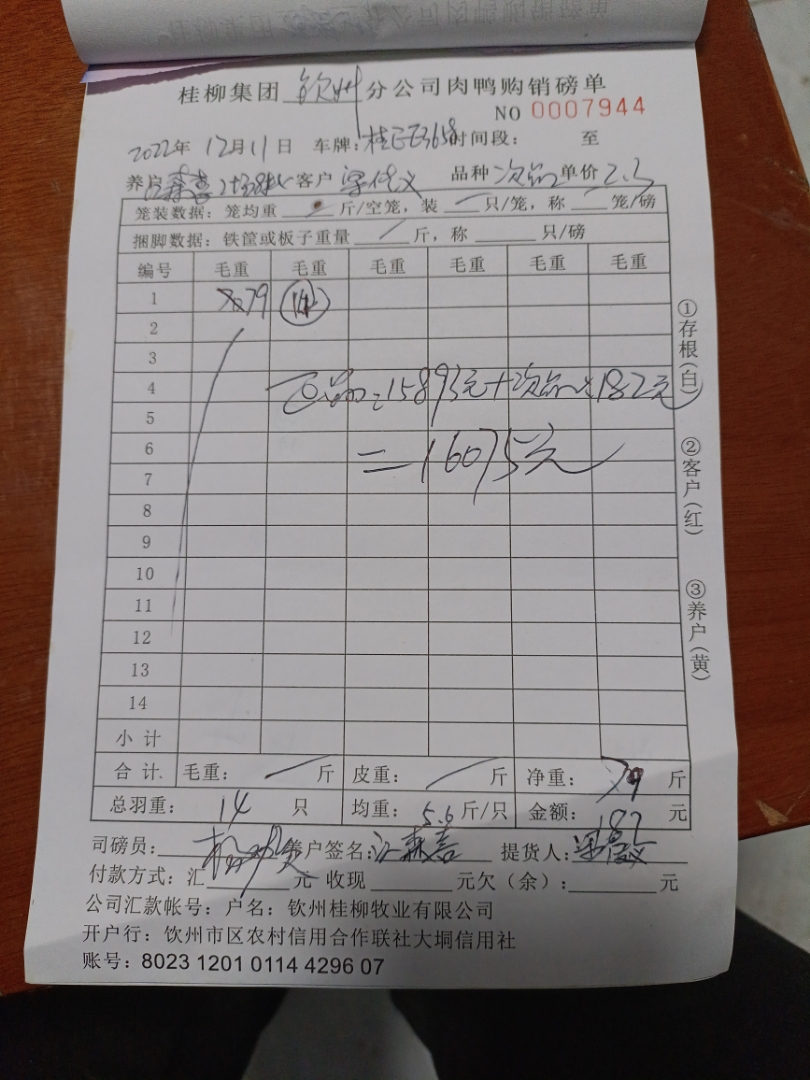 桂柳集团 钦州 分公司肉鸭购销磅单
NO 0007944
2022年 12月11日 车牌: 时间段: 至
养户 森喜 客户 品种 次品 单价 2.3
笼装数据: 笼均重 斤/空笼, 装 只/笼, 称 笼/磅
捆脚数据: 铁筐或板子重量 斤, 称 只/磅
编号 毛重 毛重 毛重 毛重 毛重 毛重
1 79 14
2
3
4 正品=15893元+次品 182元
5
6 =16075元
7
8
9
10
11
12
13
14
小计
合计 毛重: 斤 皮重: 斤 净重: 79 斤
总羽重: 14 只 均重: 5.6 斤/只 金额: 182 元
司磅员: 养户签名: 森喜 提货人:
付款方式: 汇 元 收现 元欠(余): 元
公司汇款帐号: 户名: 钦州桂柳牧业有限公司
开户行: 饮州市区农村信用合作联社大垌信用社
账号: 8023 1201 0114 4296 07
①存根(白)
②客户(红)
③养户(黄)